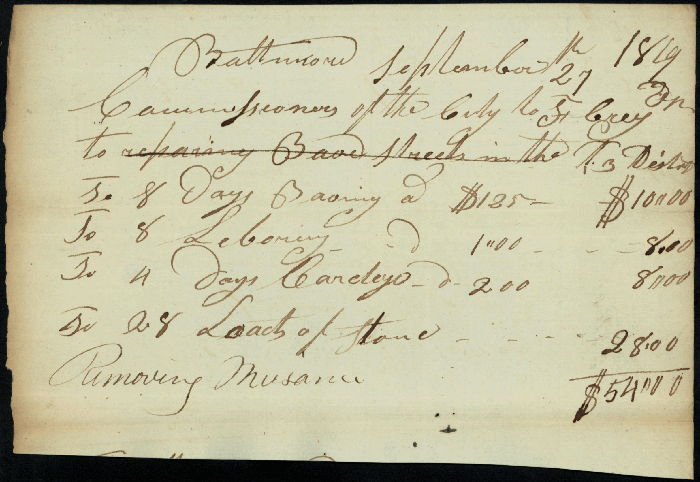 Baltimore September 27th 1819
Commissioners of the City to Grey Dr
to repairing Paved Streets in the 3 Distr
To 8 Days Paving at $125 - $10"00
To 8 Laboring - d 1"00 - - 8.00
To 4 days Cartege - d - 200 8"00
To 28 Loads of Stone - - - 28.00
Removing Nusance $54"00